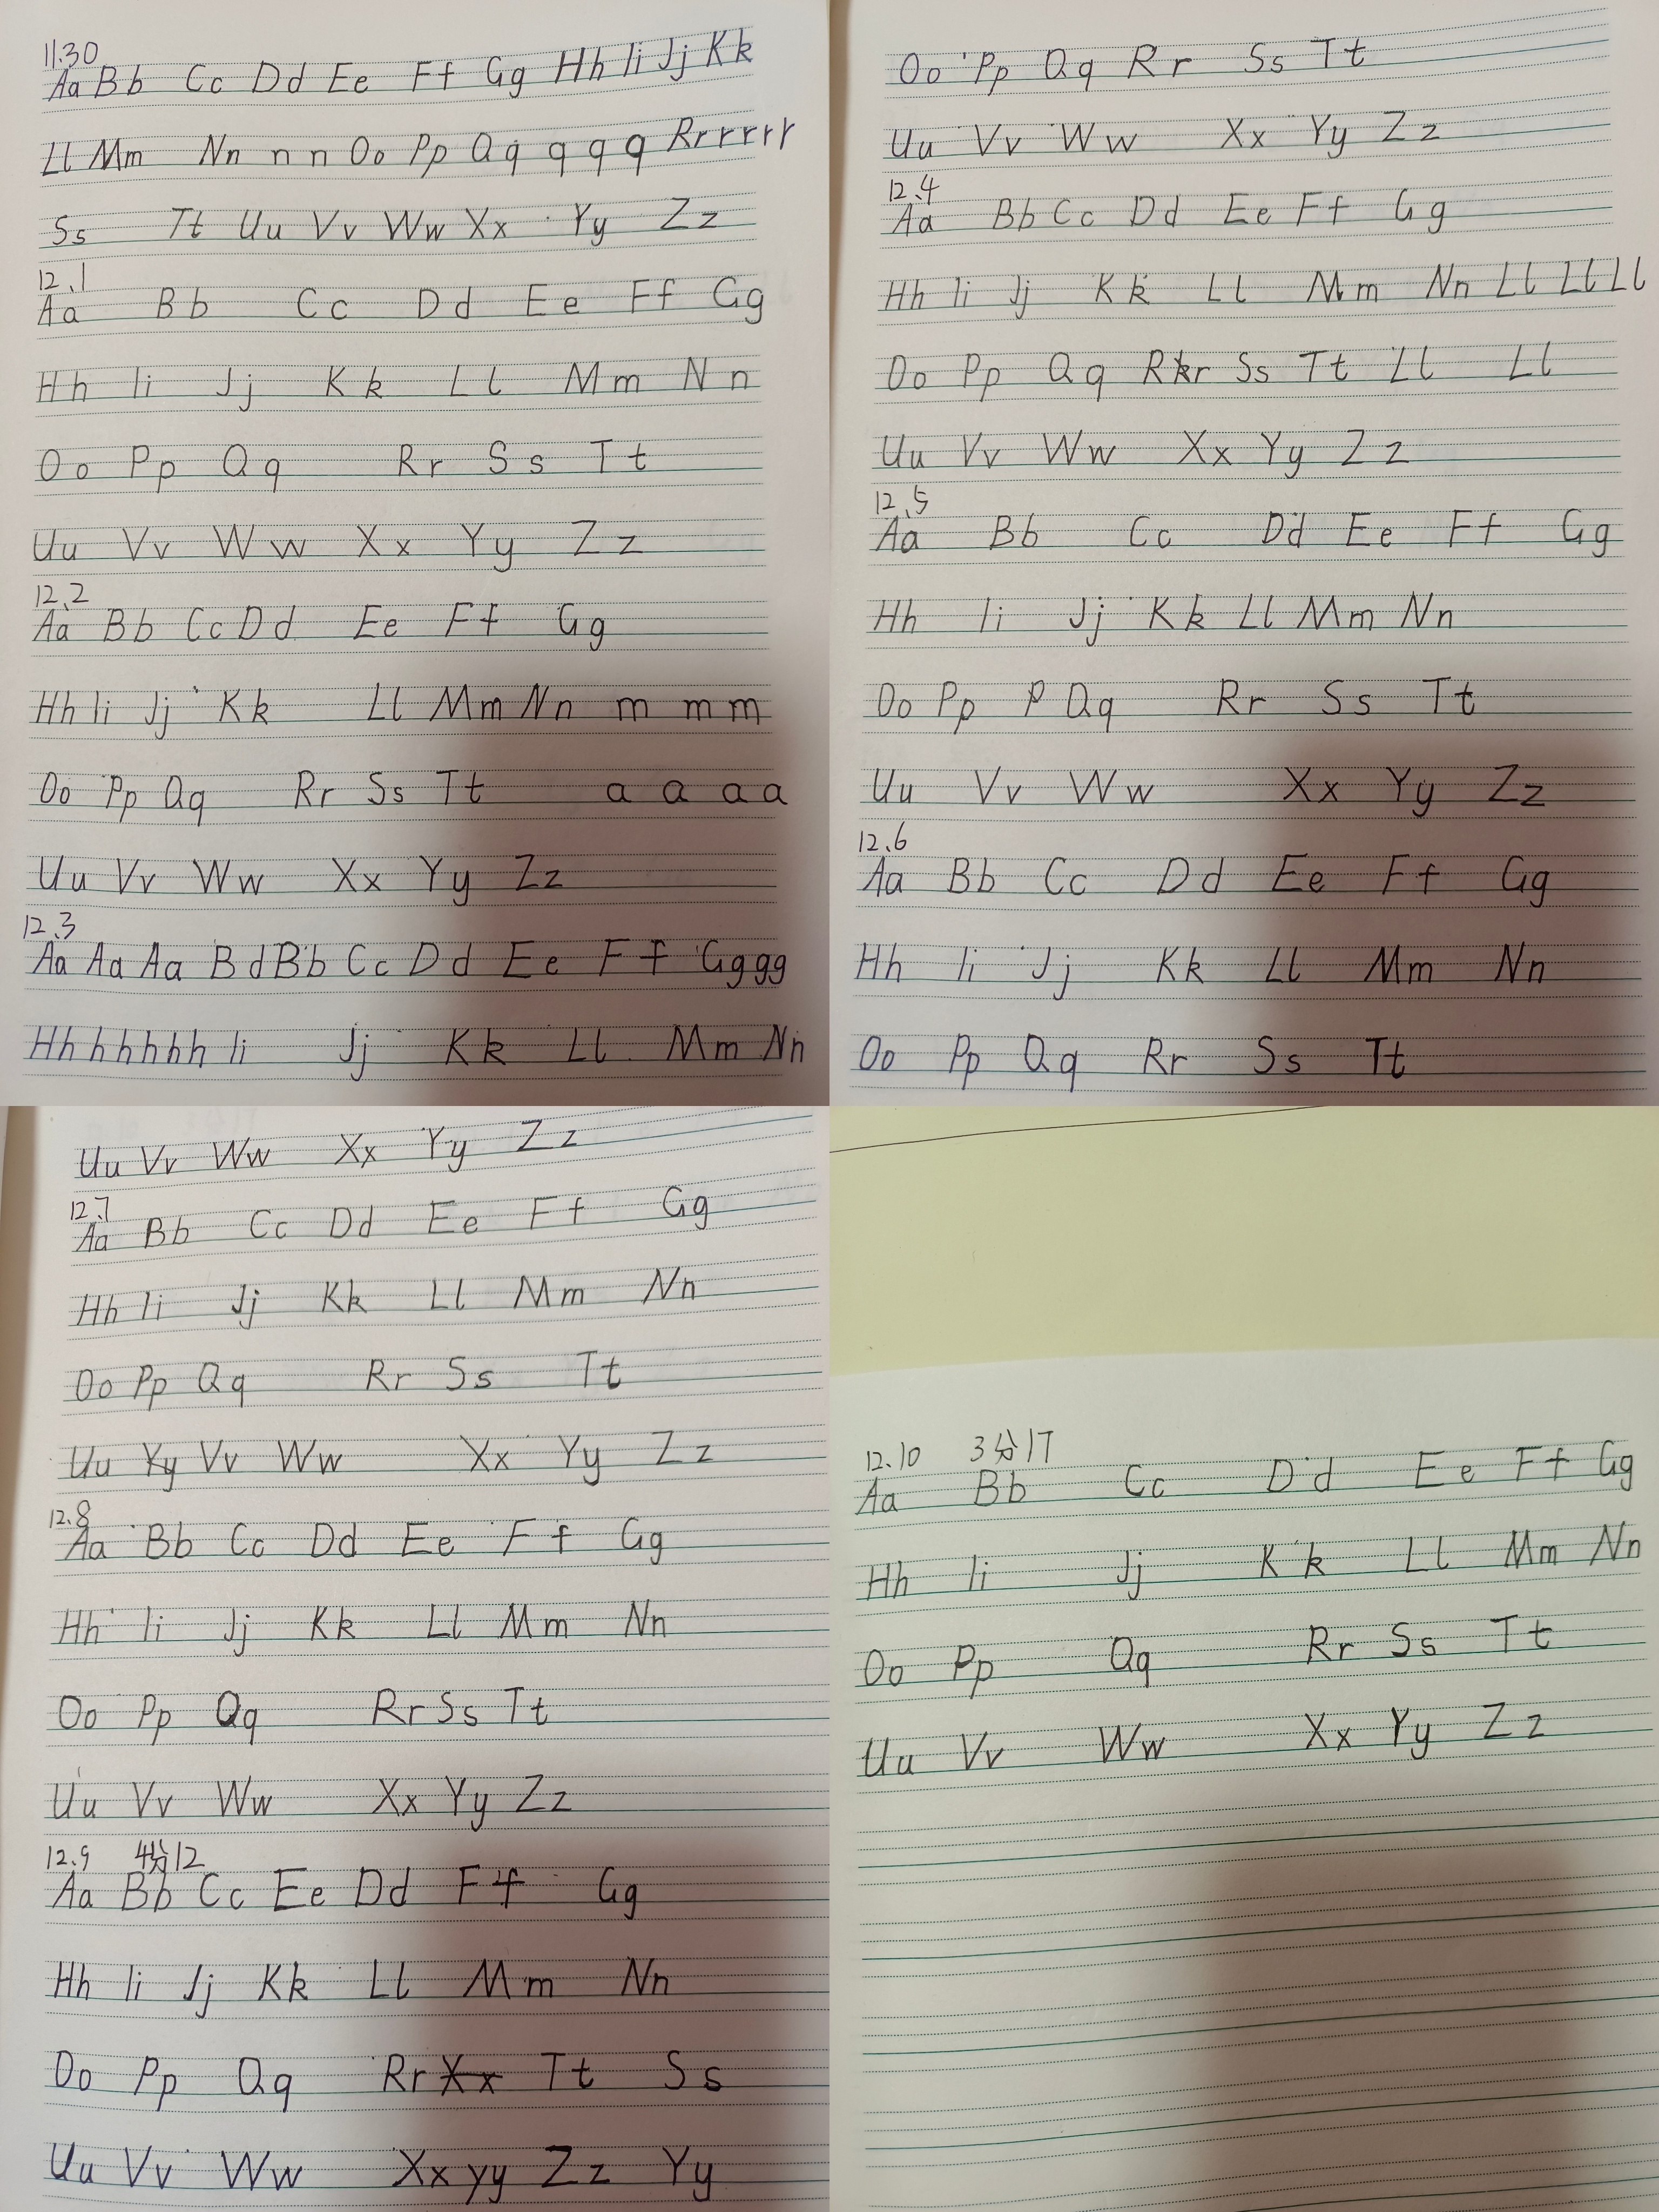 11.30
Aa Bb Cc Dd Ee Ff Gg Hh Ii Jj Kk
Ll Mm Nn n n Oo Pp Qq q q q Rr r r r r
Ss Tt Uu Vv Ww Xx Yy Zz
12、1
Aa Bb Cc Dd Ee Ff Gg
Hh Ii Jj Kk Ll Mm Nn
Oo Pp Qq Rr Ss Tt
Uu Vv Ww Xx Yy Zz
12、2
Aa Bb Cc Dd Ee Ff Gg
Hh Ii Jj Kk Ll Mm Nn m m m
Oo Pp Qq Rr Ss Tt a a a a
Uu Vv Ww Xx Yy Zz
12、3
Aa Aa Aa Bd Bb Cc Dd Ee Ff Gg g g
Hh h h h h h Ii Jj Kk Ll Mm Nn
Oo Pp Qq Rr Ss Tt
Uu Vv Ww Xx Yy Zz
12、4
Aa Bb Cc Dd Ee Ff Gg
Hh Ii Jj Kk Ll Mm Nn Ll Ll Ll
Oo Pp Qq Rkr Ss Tt Ll Ll
Uu Vv Ww Xx Yy Zz
12、5
Aa Bb Cc Dd Ee Ff Gg
Hh Ii Jj Kk Ll Mm Nn
Oo Pp P Qq Rr Ss Tt
Uu Vv Ww Xx Yy Zz
12、6
Aa Bb Cc Dd Ee Ff Gg
Hh Ii Jj Kk Ll Mm Nn
Oo Pp Qq Rr Ss Tt
Uu Vv Ww Xx Yy Zz
12、7
Aa Bb Cc Dd Ee Ff Gg
Hh Ii Jj Kk Ll Mm Nn
Oo Pp Qq Rr Ss Tt
Uu Yy Vv Ww Xx Yy Zz
12.8
Aa Bb Cc Dd Ee Ff Gg
Hh Ii Jj Kk Ll Mm Nn
Oo Pp Qq Rr Ss Tt
Uu Vv Ww Xx Yy Zz
12.9 4分12
Aa Bb Cc Ee Dd Ff Gg
Hh Ii Jj Kk Ll Mm Nn
Oo Pp Qq Rr Xx Tt Ss
Uu Vv Ww Xx yy Zz Yy
12.10 3分17
Aa Bb Cc Dd Ee Ff Gg
Hh Ii Jj Kk Ll Mm Nn
Oo Pp Qq Rr Ss Tt
Uu Vv Ww Xx Yy Zz